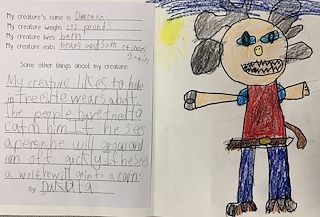 My creature's name is Dogman
My creature weighs 202 pounds
My creature lives barn
My creature eats bears and som etimes
Some other things about my creature:
My creature likes to hide
in trees he wears a hat
The people have tried to
catch him If he Sees
a person he will grow and
run off qickly if he Sees
a wolf he will go in to a cabn.
By: Dakota